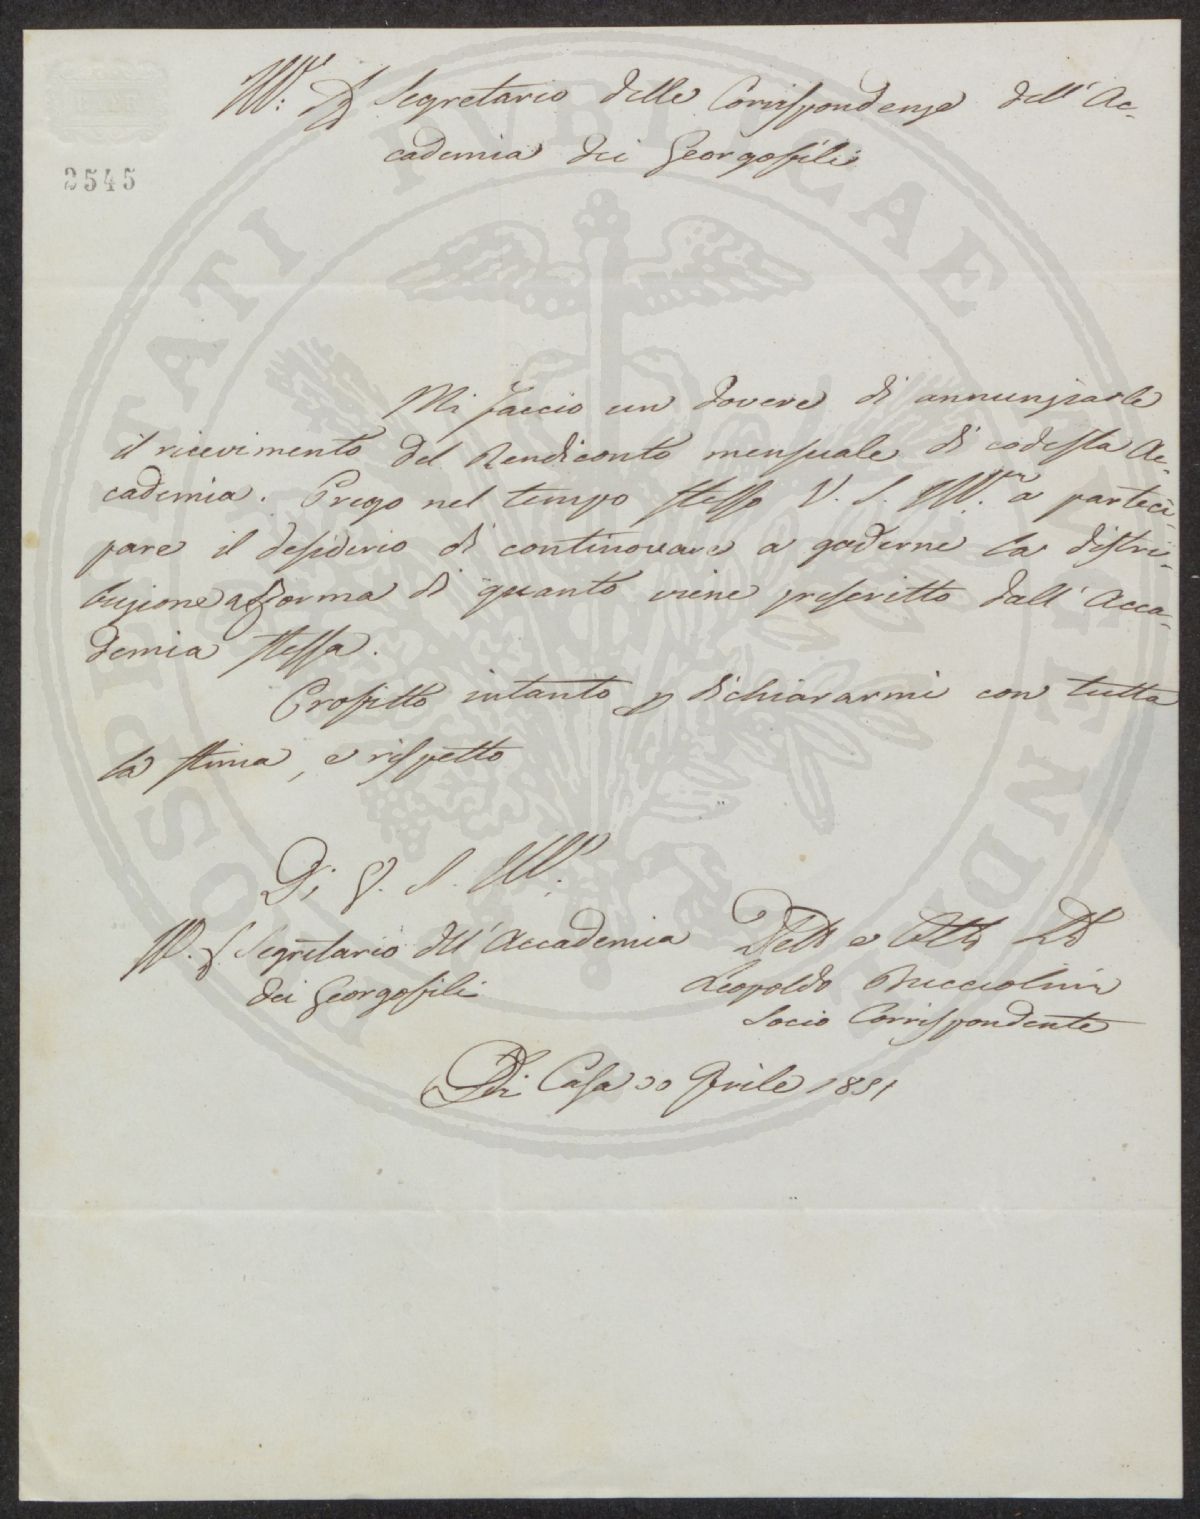 Ill.e Sg Segretario delle Corrispondenze dell' Ac-
cademia dei Georgofili
2545
Mi faccio un dovere di annunziarle
il ricevimento del Rendiconto mensuale di codesta Ac-
cademia. Prego nel tempo stesso V. S. Ill.ma a parteci-
pare il desiderio di continovare a goderne la distri-
buzione a forma di quanto viene prescritto dall' Acca-
demia stessa.
Profitto intanto p dichiararmi con tutta
la stima, e rispetto
Di V. S. Ill.
Ill. S Segretario dell' Accademia
dei Georgofili
Dev e Obb
Leopoldo Bucciolini
Socio Corrispondente
Di Casa 30 Aprile 1851
PROSPERITATI PUBLICAE AUGENDAE